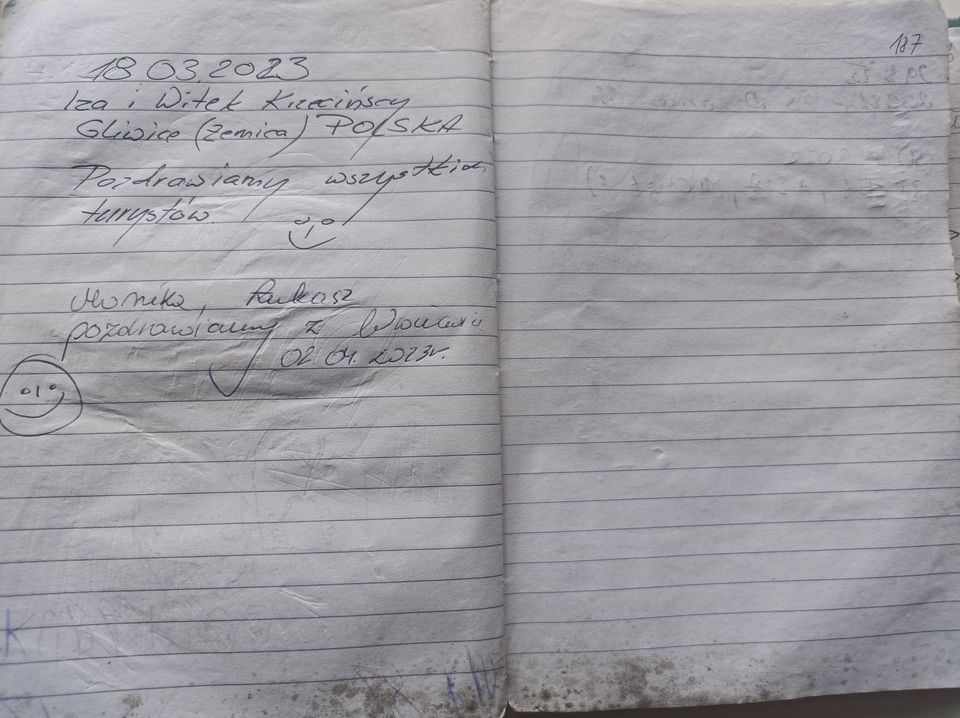 18 03.2023
Iza i Witek Krzecińscy
Gliwice (Żernica) POLSKA
Pozdrawiamy wszystkich
turystów
Monika, Łukasz
pozdrawiamy z
02.04.2023r.
187